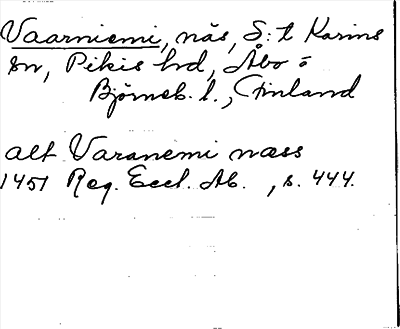 Vaarniemi, näs, S:t Karins
sn, Pikis hd, Åbo o
Björneb. l., Finland
alt Varanemi næss
1451 Reg. Eccl. Ab. , s. 444.